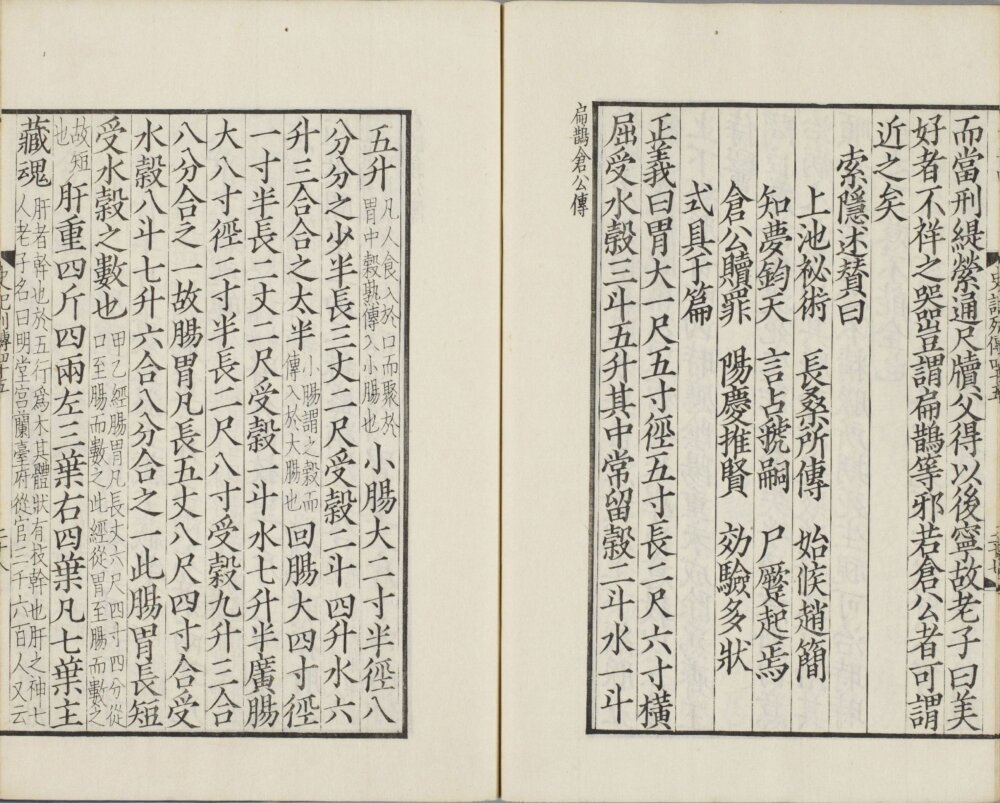 而當刑緹縈通尺牘父得以後寧故老子曰美
好者不祥之器豈謂扁鵲等邪若倉公者可謂
近之矣
索隱述贊曰
上池祕術 長桑所傳 始候趙簡
知夢鈞天 言占虢嗣 尸蹷起焉
倉公贖罪 陽慶推賢 効驗多狀
式具于篇
正義曰胃大一尺五寸徑五寸長二尺六寸橫
屈受水穀三斗五升其中常留穀二斗水一斗
扁鵲倉公傳
五升凡人食入於口而聚於胃中穀熟傳入小腸也小腸大二寸半徑八
分分之少半長三丈二尺受穀二斗四升水六
升三合合之太半小腸謂之穀而傳入於大腸也回腸大四寸徑
一寸半長二丈二尺受穀一斗水七升半廣腸
大八寸徑二寸半長二尺八寸受穀九升三合
八分合之一故腸胃凡長五丈八尺四寸合受
水穀八斗七升六合八分合之一此腸胃長短
受水穀之數也甲乙經腸胃凡長丈六尺四寸四分從口至腸而數之此經從胃至腸而數之
故短也肝重四斤四兩左三葉右四葉凡七葉主
藏魂肝者幹也於五行爲木其體狀有枝幹也肝之神七人老子名曰明堂宮蘭臺府從官三千六百人又云